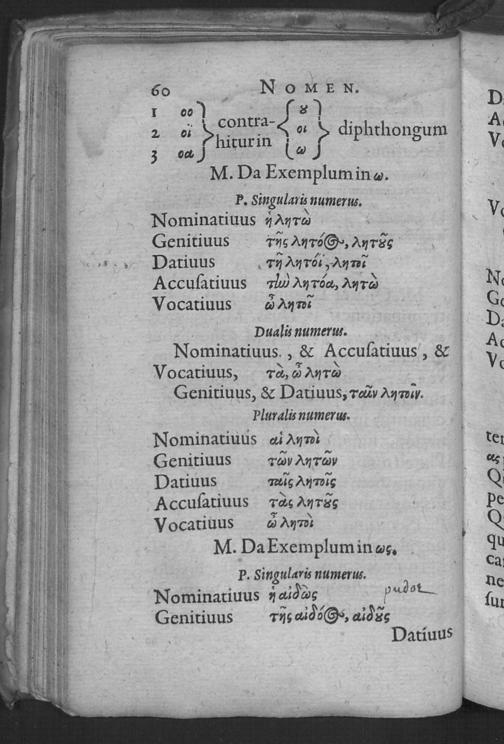 60 NOMEN.
1 οο } contra- { ȣ
2 οϊ } hiturin { οι } diphthongum
3 οα { ω
M. Da Exemplum in ω.
P. Singularis numerus.
Nominatiuus ἡ λητὼ
Genitiuus τῆς λητόος, λητȣ͂ς
Datiuus τῇ λητόϊ, λητοῖ
Accuſatiuus τὴν λητόα, λητὼ
Vocatiuus ὦ λητοῖ
Dualis numerus.
Nominatiuus, & Accuſatiuus, &
Vocatiuus, τὰ, ὦ λητὼ
Genitiuus, & Datiuus, ταῖν λητοῖν.
Pluralis numerus.
Nominatiuus αἱ λητοὶ
Genitiuus τῶν λητῶν
Datiuus ταῖς λητοῖς
Accuſatiuus τὰς λητȣ͂ς
Vocatiuus ὦ λητοὶ
M. Da Exemplum in ως.
P. Singularis numerus.
Nominatiuus ἡ αἰδὼς pudor
Genitiuus τῆς αἰδόος, αἰδȣ͂ς
Datiuus